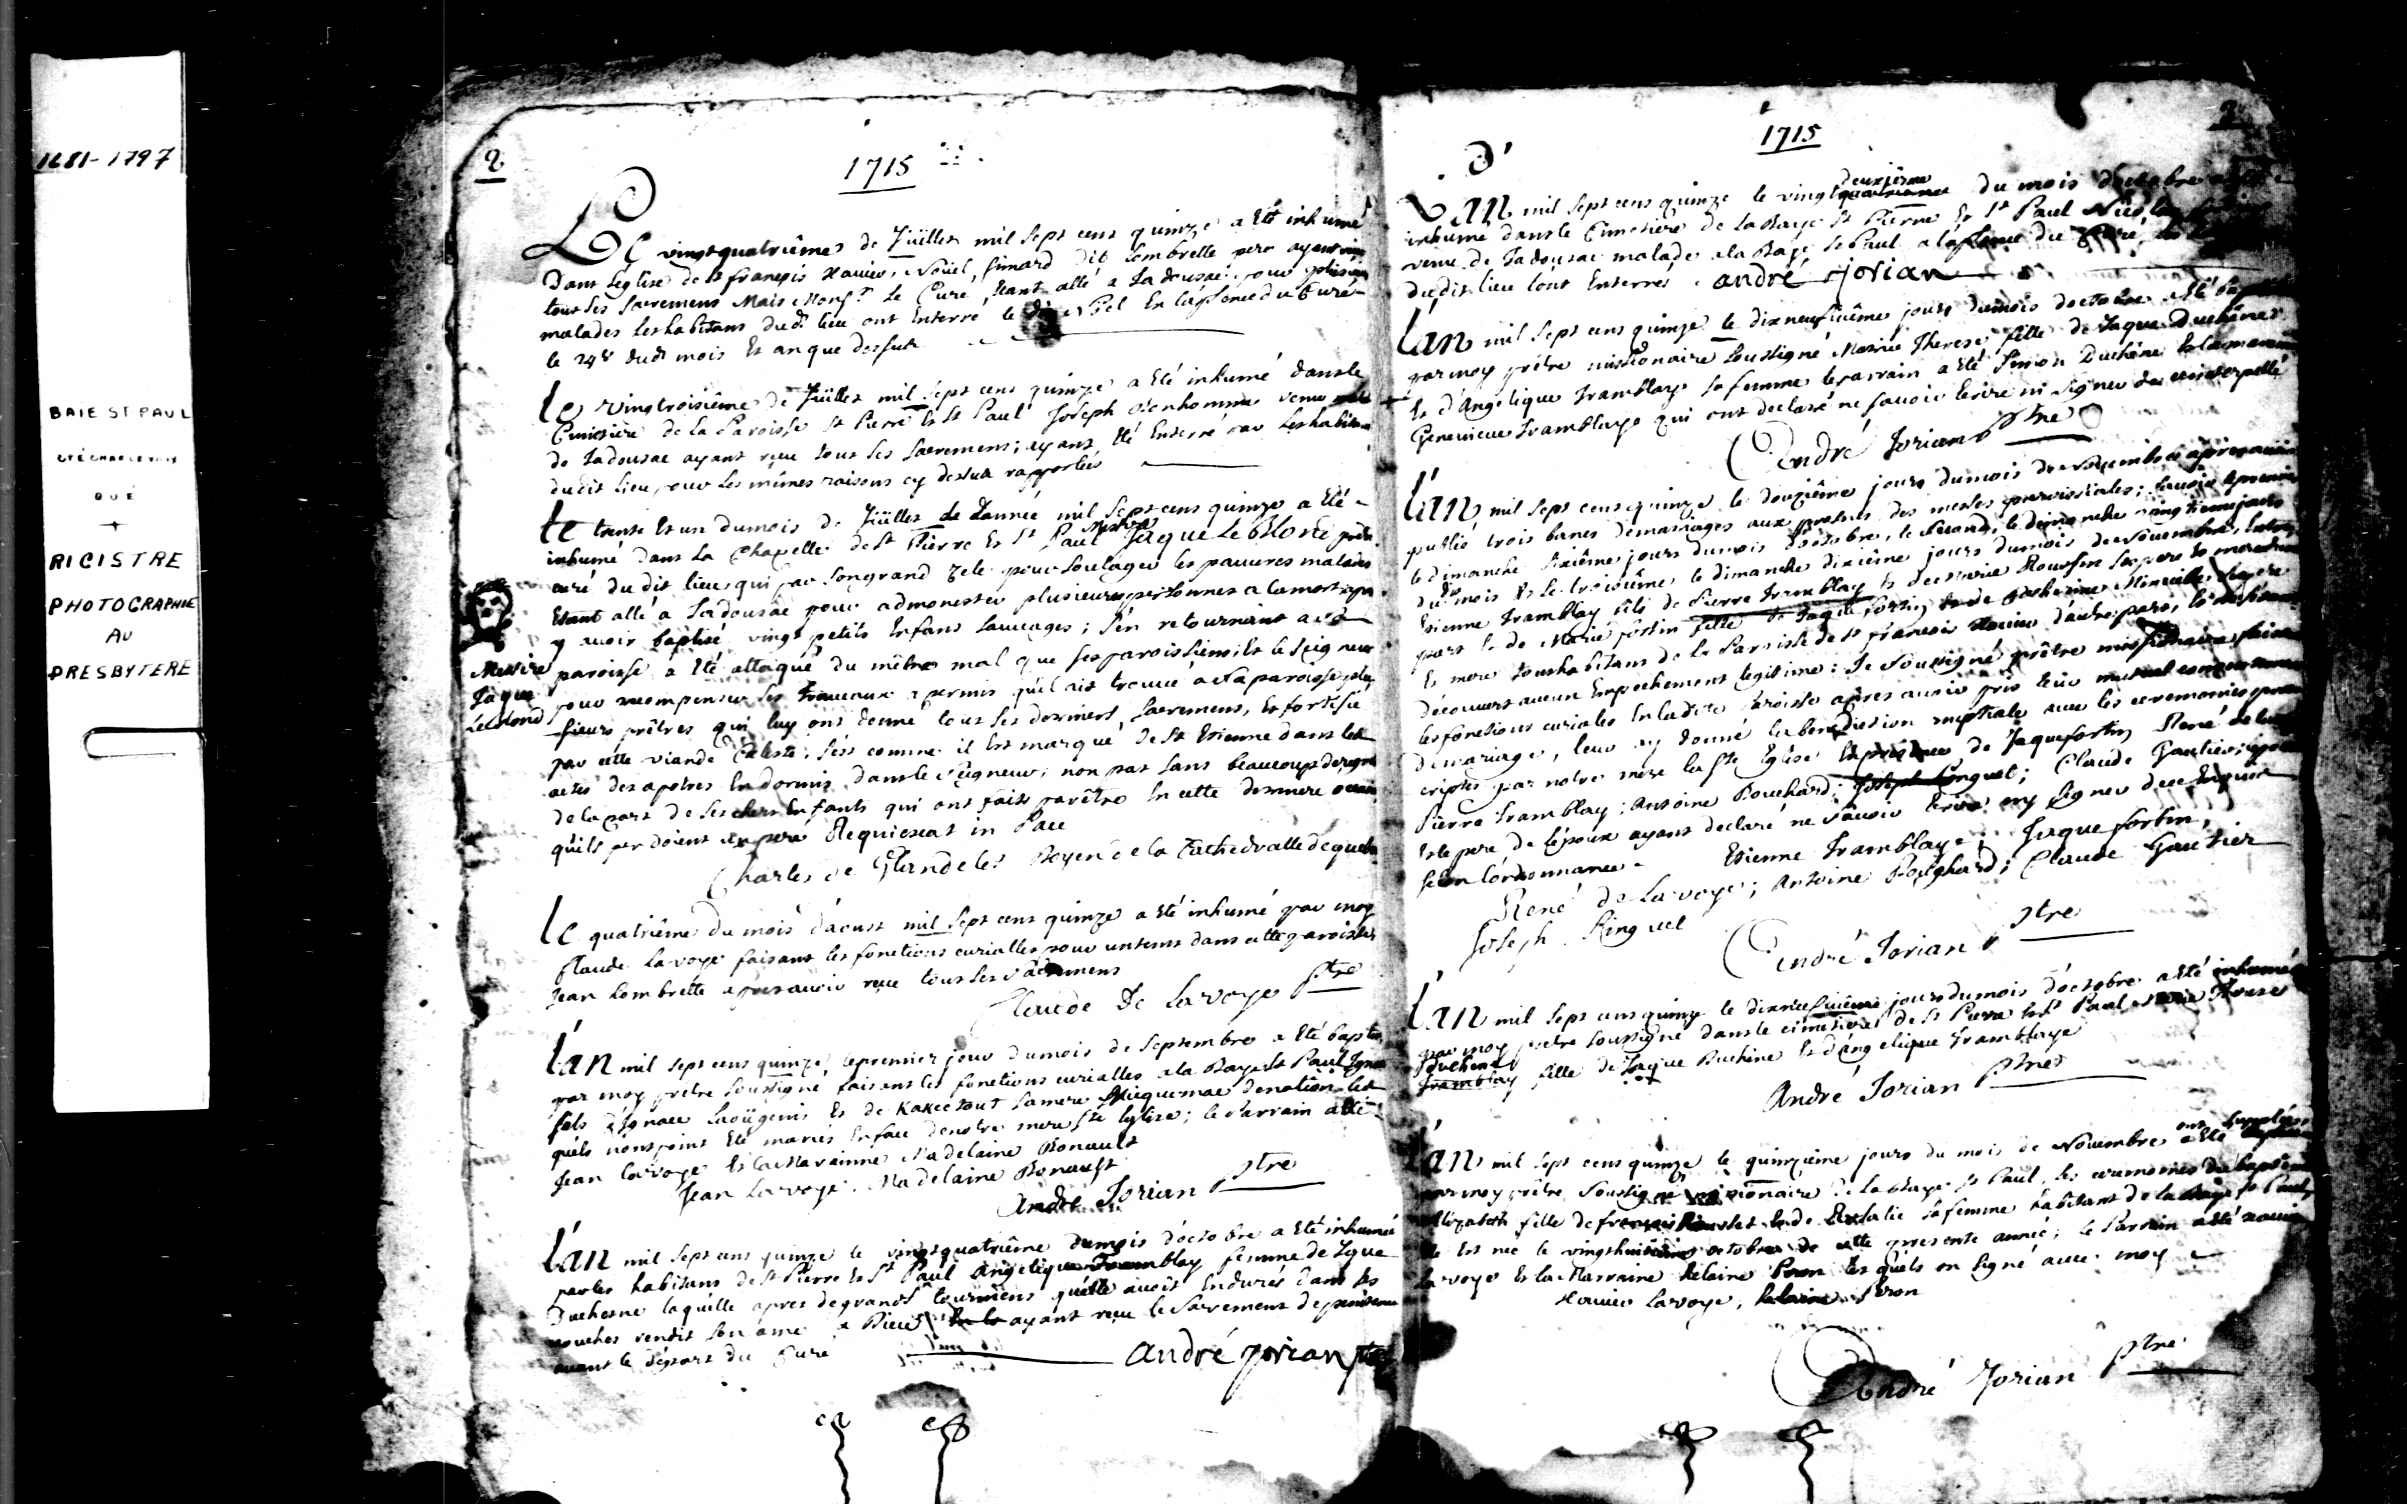 1681-1797
BAIE ST PAUL
RICISTRE
PHOTOGRAPHIE
AU
PRESBYTERE
2
1715
Le vingt quatrième de Jüillet mil sept cens quinze a Eté inhumé
Dans L'eglise de St françois Xavier, Noüel Simard dit Lombrette pere ayant
tous ses sacremens Mais Monsr. le Curé, étant allé a Tadousac pour
malades les habitans dudt lieu ont Enterré le dit Noel En l'absence du Curé
le 24e dudt mois Et an que dessus
le vingtroisième de Jüillet mil sept cens quinze a Eté inhumé dans le
Cimetiere de la Paroisse St Pierre Et St Paul Joseph Bonhomme venu
de Tadousac ayant reçu tous ses sacremens; ayant Eté Enterré par les habitans
dudit lieu, pour les mêmes raisons cy dessus rapportées
le trente Et un du mois de Jüillet de L'année mil sept cens quinze a Eté
messire
inhumé Dans la Chapelle de St Pierre Et St Paul Jaque Le Blond prêtre
curé du dit lieu, qui par son grand zele pour soulager les pauvres malades
Etant allé a Tadousac pour admonester plusieurs personnes a la mort
y avoir baptisé vingt petits Enfans sauvages; s'en retournant a sa
paroisse a Eté attaqué du même mal que ses paroissiens Et le seigneur
pour recompenser ses Travaux a permis qu'il ait trouvé a sa paroisse plu
sieurs prêtres qui luy ont donné tous les derniers sacremens, Et fortifié
par cette viande Celeste, s'est comme il Est marqué de St Etienne dans les
actes des apotres Endormis dans le seigneur, non pas sans beaucoup de
de la part de ses chers Enfants qui ont fait parêtre En cette derniere
qu'ils perdoient un pere Requiescat in Pace
Charles de Glandelet Doyen de la Cathedralle de quebec
Messire
Jaque
LeBlond
le quatrième du mois d'aoust mil sept cens quinze a Eté inhumé par moy
Claude Lavoye faisant les fonctions curialles pour un tems dans cette paroisse
Jean Lombrette apres avoir reçu tous les sacremens
Claude De Lavoye ptre
L'an mil sept cens quinze, le premier jour du mois de Septembre a Eté baptisé
par moy prêtre soussigné faisant les fonctions curialles a la Baye St Paul
fils d'Ignace Et de sa mere de nation
quels n'ont point Eté mariés En face de notre mere Ste Eglise; le Parrain a Eté
Jean Lavoye Et la Marainne Madelaine Bonault
Jean Lavoye, Madelaine Bonault
André Jorian ptre
L'an mil sept cens quinze le vingtquatrième du mois d'octobre a Eté inhumé
par les habitans de St Pierre Et St Paul angelique Tramblay femme de
Duchesne laquelle apres de grands tourmens qu'elle avoit Endurés dans les
couches rendit son ame a Dieu, ayant reçu le sacrement de penitence
avant le départ du Curé
André Jorian ptre
1715
L'an mil sept cens quinze le vingt deuxième du mois d'octobre
inhumé dans le Cimetiere de la Baye St Pierre Et St Paul
venu de Tadousac malade a la Baye St Paul a l'absence du Curé
dudit lieu l'ont Enterré. andré jorian
L'an mil sept cens quinze le dixneufvième jour du mois d'octobre a Eté
par moy prêtre missionaire soussigné Marie Therese fille de Jaque Duchêne
Et d'Angelique Tramblay sa femme le parrain a Eté Simon Duchêne Et la maraine
Genevieve Tramblaye qui ont declaré ne savoir Ecrire ni signer de ce interpellé
André Jorian ptre
L'an mil sept cens quinze le douzième jour du mois de Novembre apres avoir
publié trois banes de mariages aux prosnes des messes parroissiales; savoir le premier
le dimanche jour du mois d'octobre, le second, le dimanche
du mois Et le troisième le dimanche dixième jour du mois de Novembre, Entre
Etienne Tramblay fils de Pierre Tramblay Et de Marie Roussin ses pere Et mere d'une
part Et de Marie fortin fille de Jaque fortin Et de Catherine ses pere
Et mere tous habitans de la Paroisse de St françois Xavier d'autre part, Et n'ayant
découvert aucun Empechement legitime: Je soussigné prêtre missionaire faisant
les fonctions curiales En ladite Paroisse apres avoir pris leur mutuel consentement
de mariage, leur ay donné la benediction nuptiale avec les ceremonies pres
crites par notre mere la Ste Eglise En présence de Jaque fortin René de Lavoye
Pierre Tramblay; Antoine Bouchard; Joseph Ringuet; Claude Gautier;
Et le pere de l'epoux ayant declaré ne savoir Ecrire ny signer de ce Enquis
selon l'ordonnance
Etienne Tramblaye, Jaque fortin,
René de Lavoye; Antoine Bouchard; Claude Gautier
Joseph Ringuet
André Jorian ptre
L'an mil sept cens quinze le dixneufvième jour du mois d'octobre a Eté inhumé
par moy prêtre soussigné dans le cimetiere de St Pierre Et St Paul Marie Therese
Duchene
Tramblay fille de Jaque Duchêne Et d'angelique Tramblaye
André Jorian ptre
L'an mil sept cens quinze le quinzième jour du mois de Novembre ont Eté
par moy prêtre soussigné missionaire de la Baye St Paul, les ceremonies du baptême
Elizabeth fille de françois Et de sa femme habitant de la Baye St Paul,
elle Est née le vingthuitième octobre de cette presente année; le Parrain a Eté Xavier
Lavoye Et la Marraine Helaine Peron lesquels on signé avec moy
Xavier Lavoye, Helaine Peron
André Jorian ptre